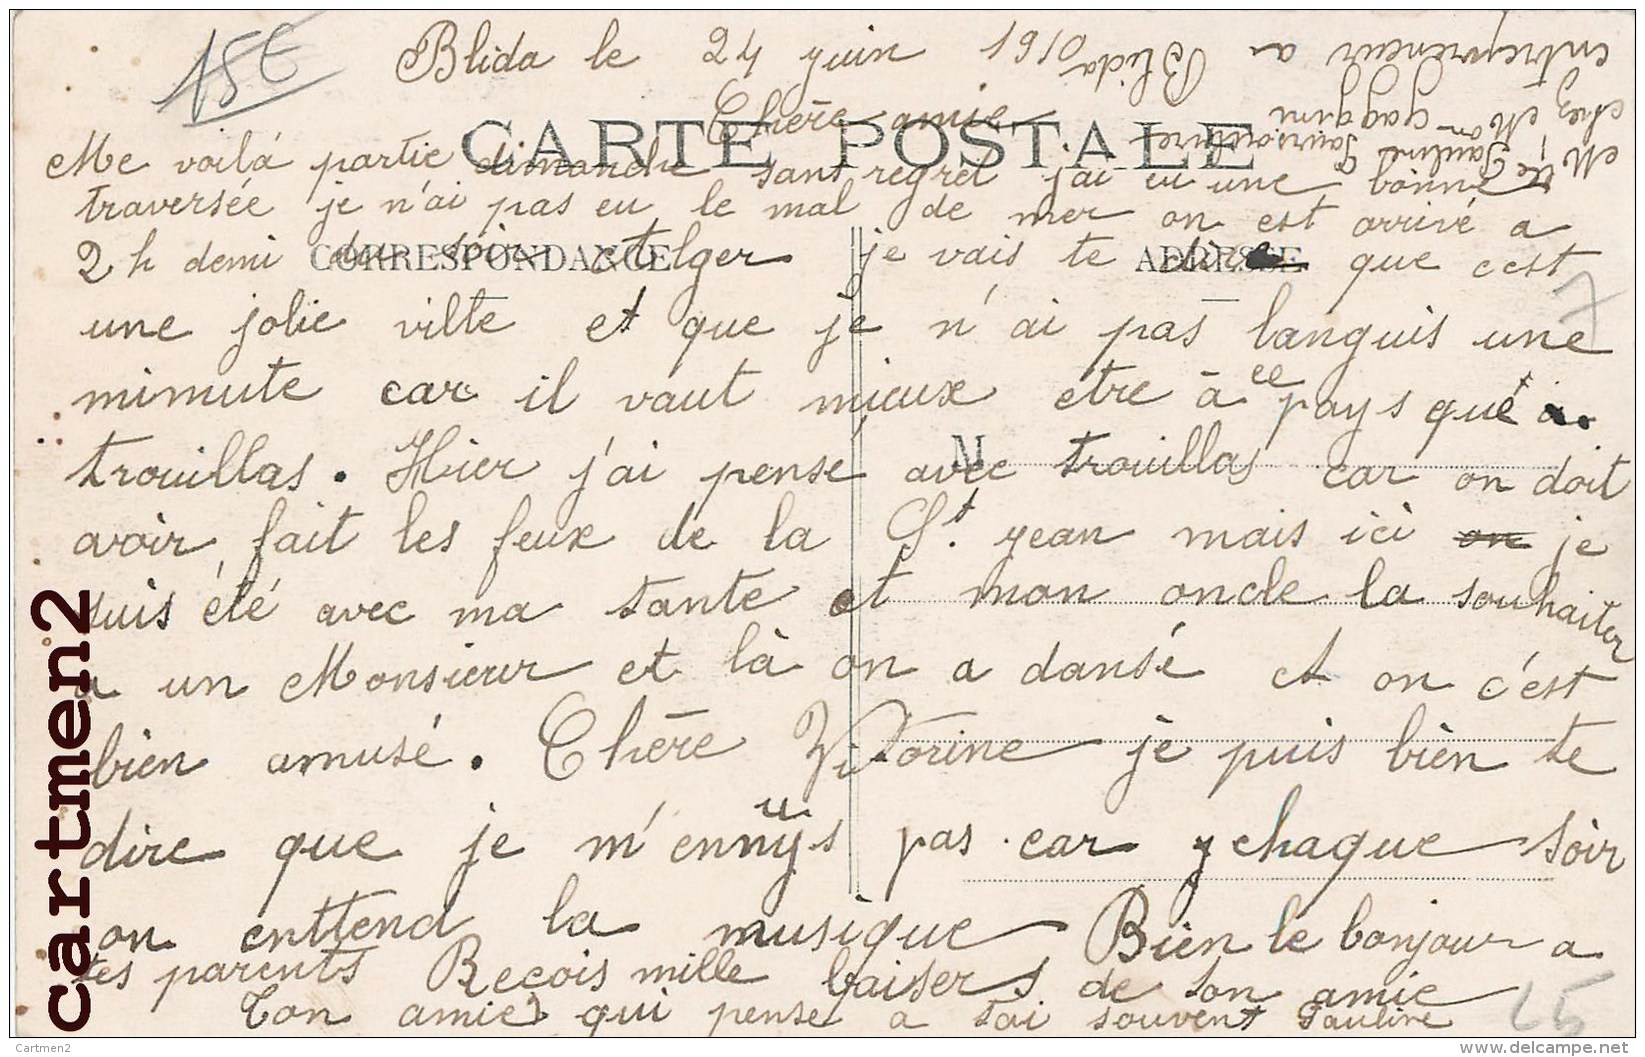 15€
Blida le 24 juin 1910
Chère amie
CARTE POSTALE
Me voilá partie dimanche sans regret j'ai eu une bonne
traversée je n'ai pas eu le mal de mer on est arrivé a
2 h demi du soir a Alger je vais te dire que cest
CORRESPONDANCE ADRESSE
une jolie ville et que je n'ai pas languis une
minute car il vaut mieux etre à ce pays qué à
trouillas. Hier j'ai pensé avec trouillas car on doit
M
avoir fait les feux de la St. yean mais ici on je
suis été avec ma tante et mon oncle la souhaiter
a un Monsieur et là on a dansé et on c'est
bien amusé. Chère Victorine je puis bien te
dire que je m'ennuys pas car y chaque soir
on enttend la musique Bien le bonjour a
tes parents Reçois mille baisers de ton amie
Ton amie qui pense a toi souvent Pauline
Mlle Pauline
chez Mon Gaggini
entrepreneur a Blida
25
cartmen2
Cartmen2
delcampe.net